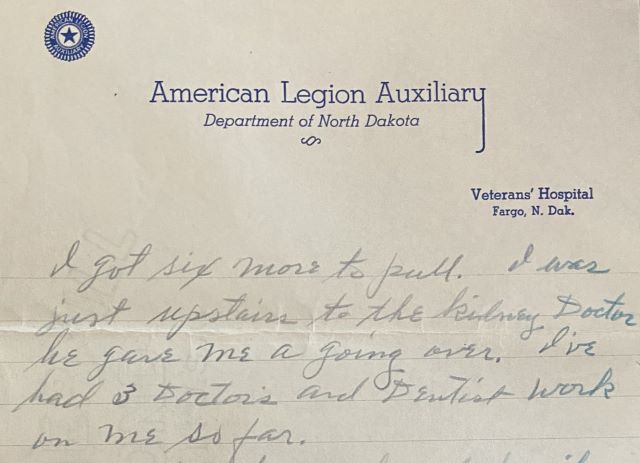 AMERICAN LEGION
AUXILIARY
American Legion Auxiliary
Department of North Dakota
Veterans' Hospital
Fargo, N. Dak.
I got six more to pull. I was
just upstairs to the kidney Doctor
he gave me a going over. I've
had 3 Doctors and Dentist work
on me so far.